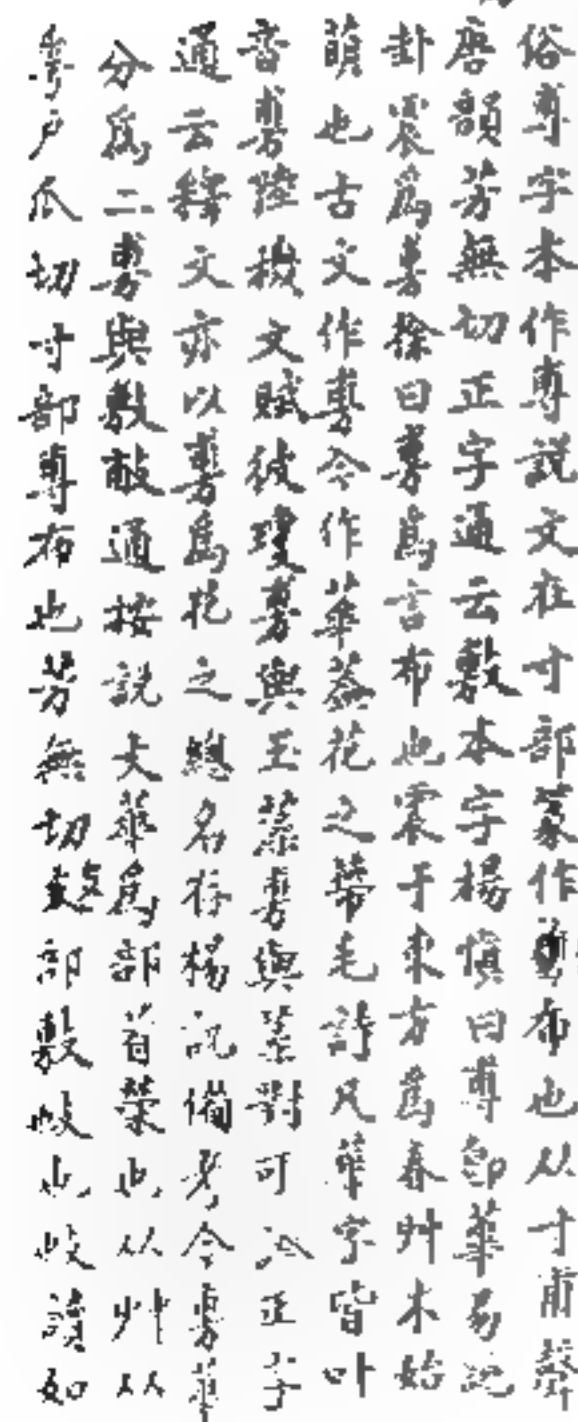 俗尃字本作尃說文在寸部篆作尃布也从寸甫聲
唐韻芳無切正字通云敷本字楊慎曰尃卽華易說
卦震爲旉徐曰旉爲言布也震于東方爲春艸木始
萌也古文作旉今作華蓋花之蒂毛詩凡華字皆叶
音旉陸機文賦彼瓊旉與玉蘂旉與蘂對可証正字
通云釋文亦以旉爲花之總名存楊說備考今旉華
分爲二旉與敷敲通按說文華爲部首榮也从艸从
𠌶戶瓜切寸部尃布也芳無切攴部敷㪅也㪅讀如